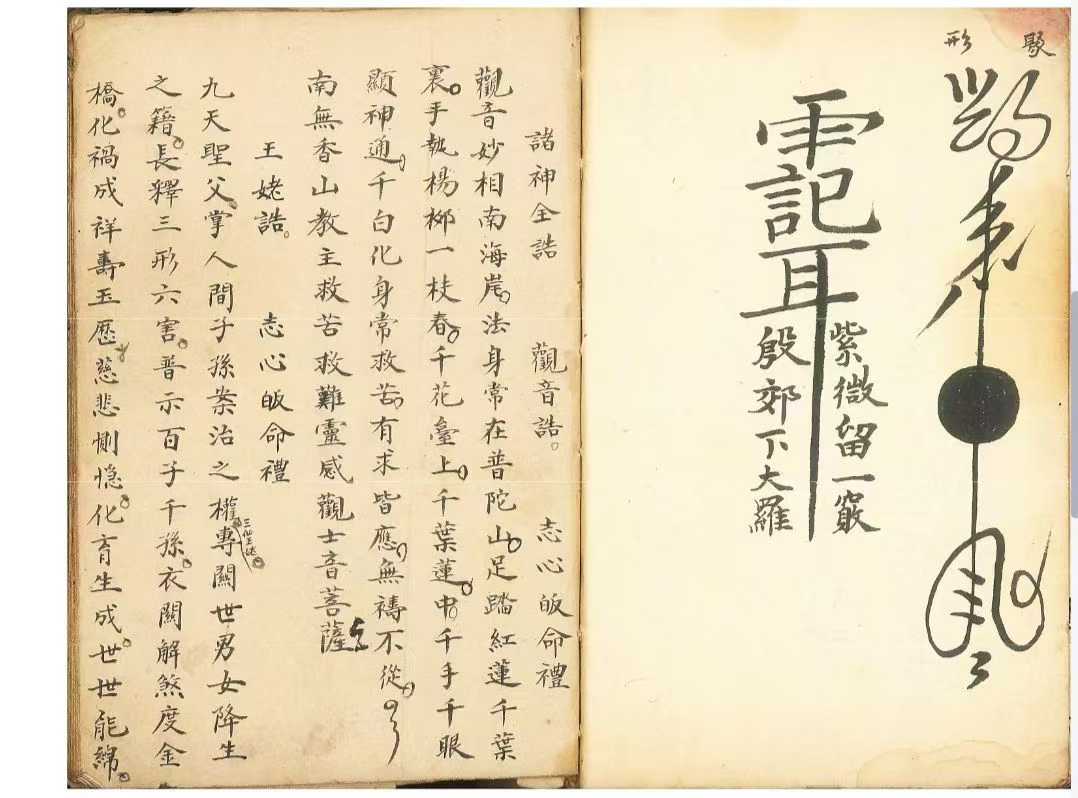 聚形
紫微留一竅
殷郊下大羅
諸神全誥 觀音誥。 志心皈命禮
觀音妙相南海岸。法身常在普陀山。足踏紅蓮千葉
裏。手執楊柳一枝春。千花臺上。千葉蓮中。千手千眼
顯神通。千白化身常救苦。有求皆應。無禱不從。
南無香山教主救苦救難靈感觀士音菩薩
王姥誥。 志心皈命禮
九天聖父。掌人間子孫案治之權專闗世男女降生
之籍。長釋三形六害。普示百子千孫。衣關解煞度金
橋。化禍成祥壽玉歷。慈悲惻隐。化育生成。世世能綿。